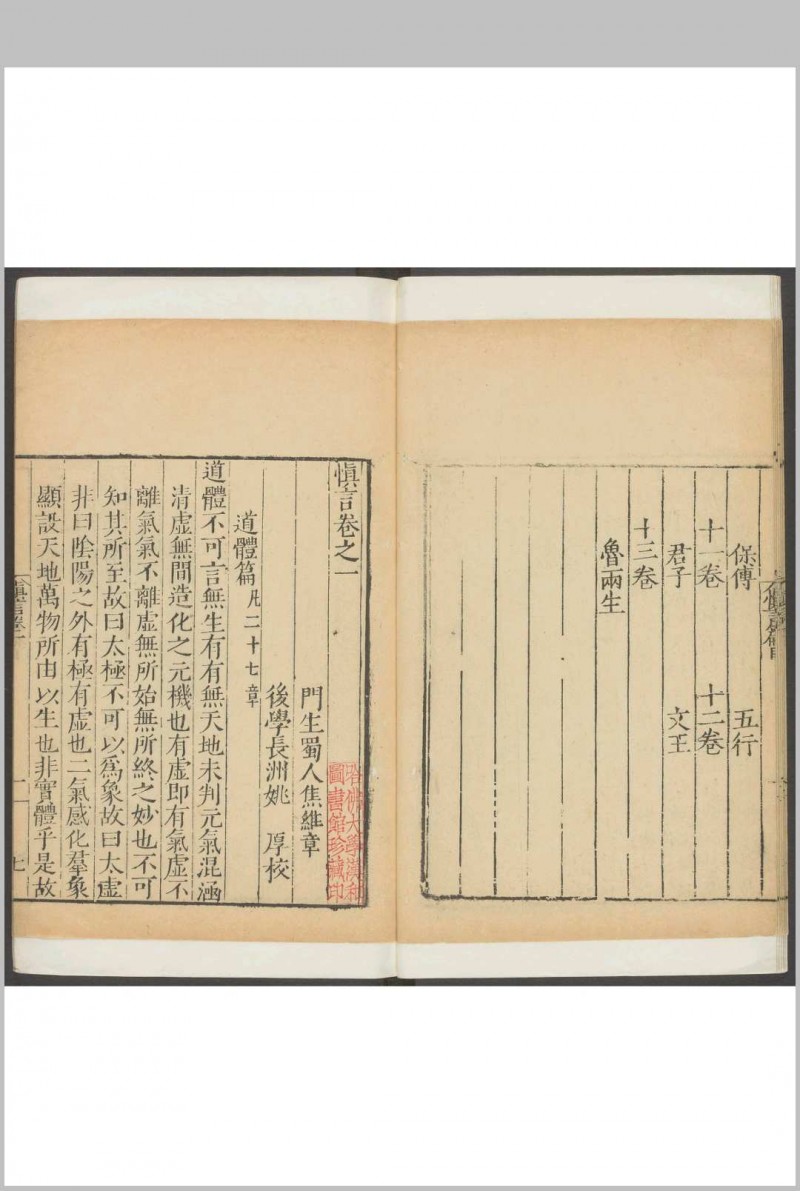 保傅 五行
十一卷 十二卷
君子 文王
十三卷
魯兩生
慎言卷之一
門生蜀人焦維章
後學長洲姚 厚校
道體篇凡二十七章
道體不可言無生有有無天地未判元氣混涵
清虛無間造化之元機也有虛即有氣虛不
離氣氣不離虛無所始無所終之妙也不可
知其所至故曰太極不可以爲象故曰太虛
非曰陰陽之外有極有虛也二氣感化羣象
顯設天地萬物所由以生也非實體乎是故
七
哈佛大學漢和
圖書館珍藏印